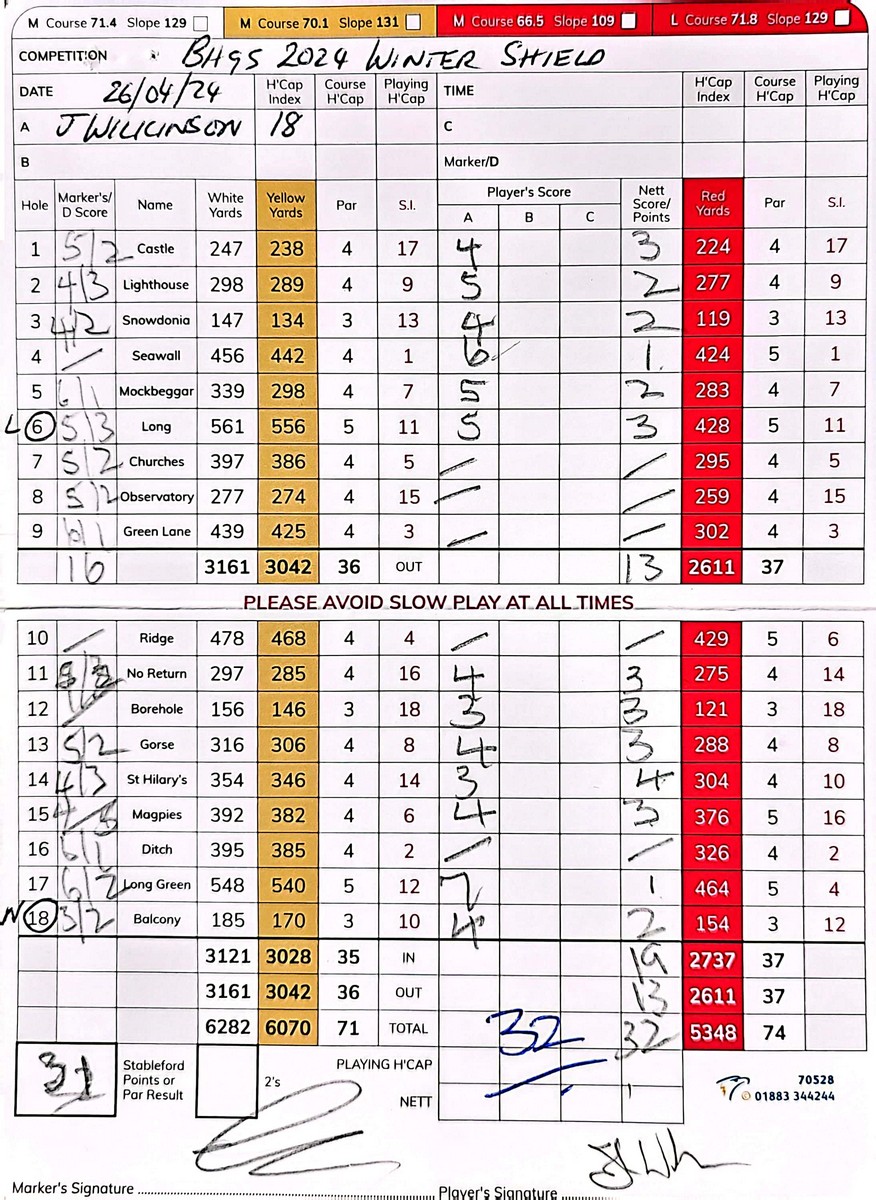 M Course 71.4 Slope 129 M Course 70.1 Slope 131 M Course 66.5 Slope 109 L Course 71.8 Slope 129
COMPETITION BHGS 2024 WINTER SHIELD
DATE 26/04/24 H'Cap Index Course H'Cap Playing H'Cap TIME H'Cap Index Course H'Cap Playing H'Cap
A J WILKINSON 18 C
B Marker/D
Hole Marker's/ D Score Name White Yards Yellow Yards Par S.I. Player's Score A B C Nett Score/ Points Red Yards Par S.I.
1 5/2 Castle 247 238 4 17 4 3 224 4 17
2 4/3 Lighthouse 298 289 4 9 5 2 277 4 9
3 4/2 Snowdonia 147 134 3 13 4 2 119 3 13
4 / Seawall 456 442 4 1 6 1 424 5 1
5 6/1 Mockbeggar 339 298 4 7 5 2 283 4 7
L 6 5/3 Long 561 556 5 11 5 3 428 5 11
7 5/2 Churches 397 386 4 5 / / 295 4 5
8 5/2 Observatory 277 274 4 15 / / 259 4 15
9 6/1 Green Lane 439 425 4 3 / / 302 4 3
16 3161 3042 36 OUT 13 2611 37
PLEASE AVOID SLOW PLAY AT ALL TIMES
10 / Ridge 478 468 4 4 / / 429 5 6
11 No Return 297 285 4 16 4 3 275 4 14
12 Borehole 156 146 3 18 3 3 121 3 18
13 5/2 Gorse 316 306 4 8 4 3 288 4 8
14 4/3 St Hilary's 354 346 4 14 3 4 304 4 10
15 Magpies 392 382 4 6 4 3 376 5 16
16 6/1 Ditch 395 385 4 2 / / 326 4 2
17 6/2 Long Green 548 540 5 12 7 1 464 5 4
N 18 3/2 Balcony 185 170 3 10 4 2 154 3 12
3121 3028 35 IN 19 2737 37
3161 3042 36 OUT 13 2611 37
6282 6070 71 TOTAL 32 32 5348 74
31 Stableford Points or Par Result 2's PLAYING H'CAP
NETT
70528
01883 344244
Marker's Signature Player's Signature